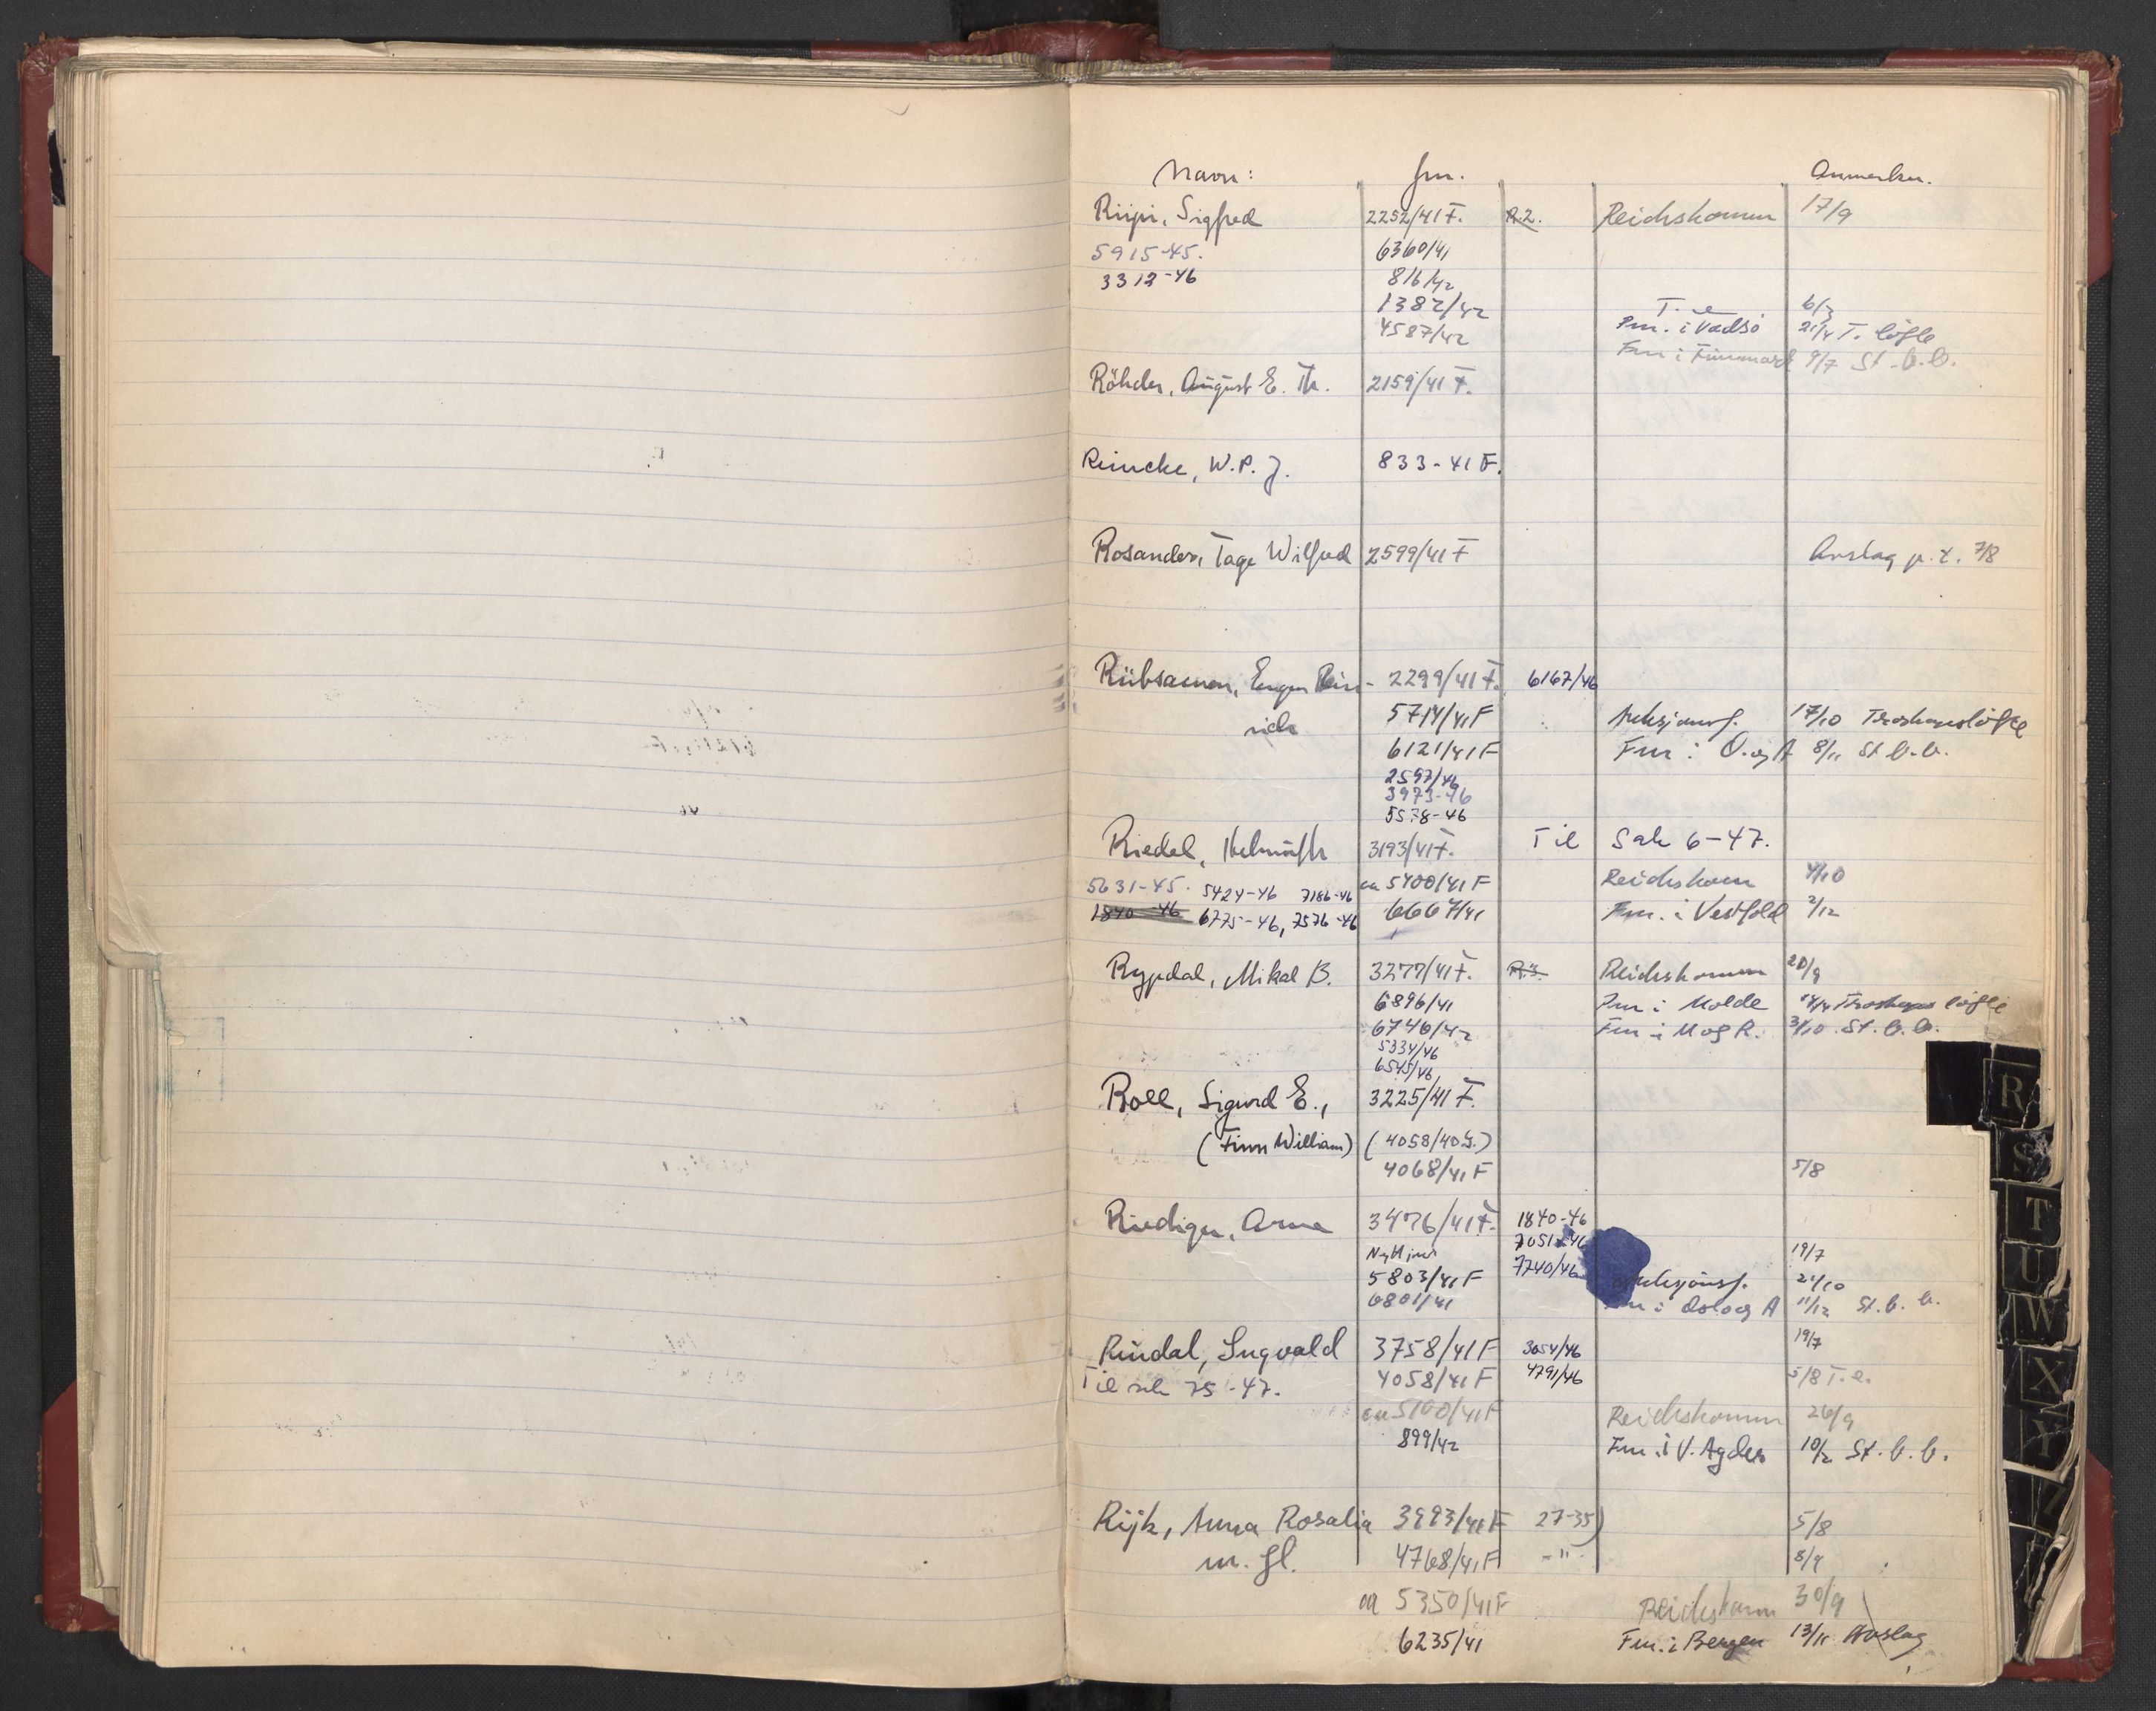 Navn: Jnr. Anmerkn.
Riipi, Sigfred 2252/41 F. R.2. Reichskomm 17/9
5915-45. 6360/41
3312-46 816/42
1382/42 T. e 6/3
4587/42 Fm. i Vadsö 21/4 T. löfte
Fm i Finnmark 9/7 St. b.b.
Röhder, August E. Th. 2159/41 F.
Reincke, W.P.J. 833-41 F.
Rosander, Tage Wilfred 2599/41 F Avslag p.t. 7/8
Rübsamen, Eugen Hein- 2299/41 F. 6167/46
rich 5714/41 F Auksjonsf. 17/10 Troskapslöfte
6121/41 F Fm i O. og A 8/11 St b.b.
2597/46
3973-46
5538-46
Riedel, Helmuth 3193/41 F. Til Sak 6-47.
5631-45. 5424-46 7186-46 5400/41 F Reichskom 4/10
1840-46 6775-46, 7576-46 6667/41 Fm. i Vestfold 2/12
Rypdal, Mikal B. 3277/41 F. R.3. Reichskomm 20/9
6896/41 Pm i Molde Troskaps löfte
6746/42 Fm i M og R. 3/10 St. b.b.
5334/46
6545/46
Roll, Sigurd E., 3225/41 F.
(Finn William) (4058/40 G.)
4068/41 F 5/8
Riediger, Arne 3476/41 F. 1840-46
Nytt jnr 7051-46 19/7
5803/41 F 7740/46 Auksjonsf. 21/10
6801/41 Fm i Oslo og A 11/12 St. b. b.
Rindal, Ingvald 3758/41 F 3654/46 19/7
Til sak 75-47. 4058/41 F 4791/46 5/8 T.e.
5100/41 F Reichskomm 26/9
899/42 Fm. i V. Agder 10/2 St. b. b.
Rijk, Anna Rosalia 3993/41 F 27-35) 5/8
m. fl. 4768/41 F -"- 8/9
5350/41 F Reichskomm 30/9
6235/41 Fm. i Bergen 13/11 Avslag
R
S
T
U
W
X
Y
Z